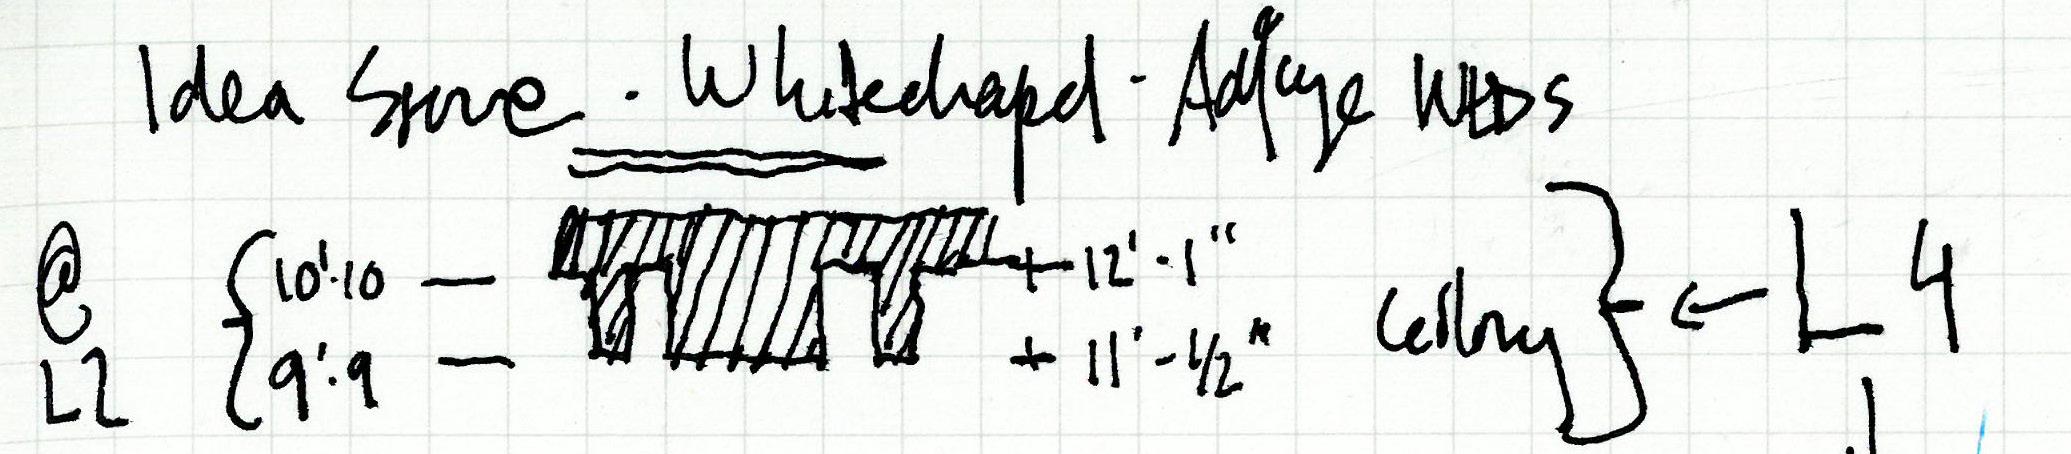 Idea Store - Whitechapel - Adjaye
@ 10'.10 — + 12' - 1" ← L 4
L2 9'.9 — + 11' - 1/2" Ceiling